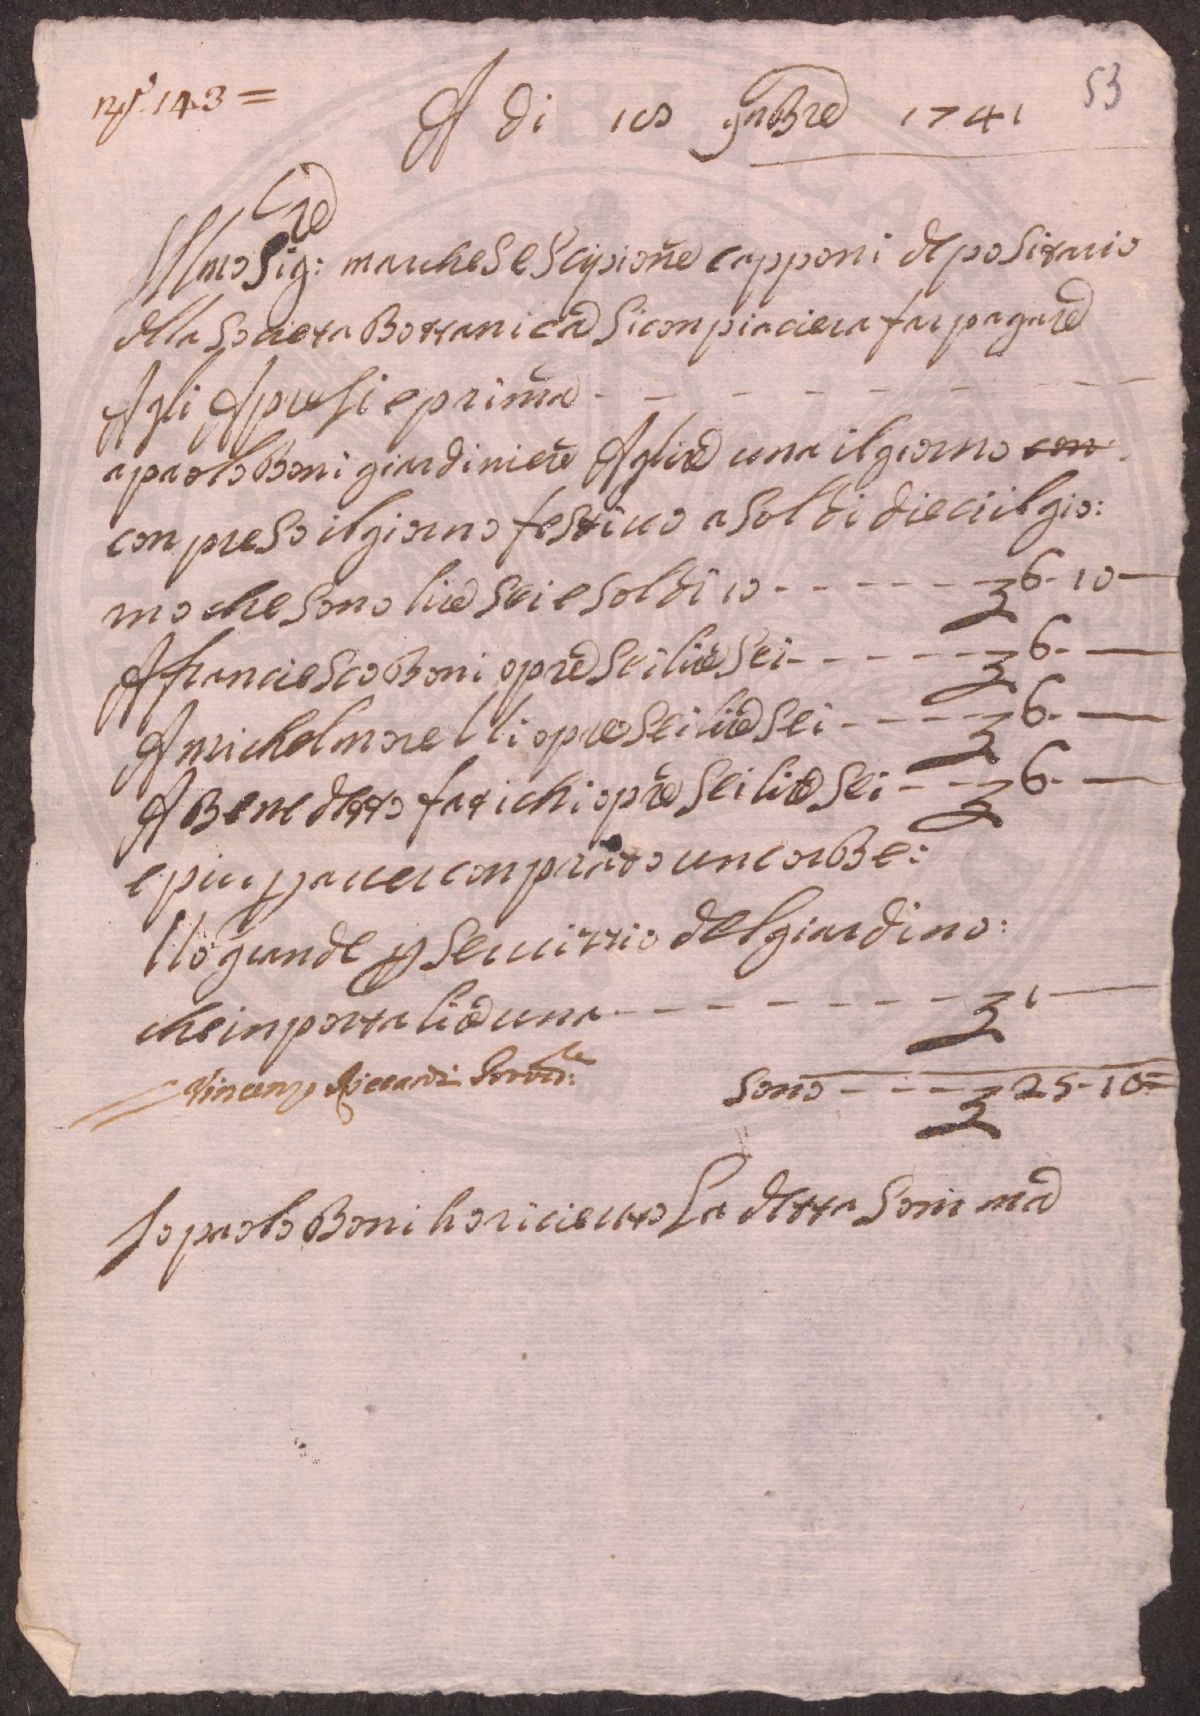 No. 143 =
53
A di 10 9mBre 1741
Illmo Sig:re marchese Scipione capponi depositario
della Societa Bottanica Si conpiaciera far pagare
A gli Apresi e prima - - - - - - -
a paolo Boni giardiniere A lire una il giorno con
con preso il giorno festivo a soldi dieci il gio:
rno che sono lire sei e soldi 10 - - - - - 6 - 10 —
A franciesco Boni opre sei lire sei - - - - - 6 - —
A michel morelli opre sei lire sei - - - - 6 - —
A Benedetto fatichi opre sei lire sei - - - 6 - —
e piu p aver conprato un corBe:
llo grande p servizzio del giardino:
che inporta lire una - - - - - - - 1 —
Vincenzo Riccardi Provred:re
Sono - - - - 25 - 10 =
Io paolo Boni ho riceuto La detta Somma